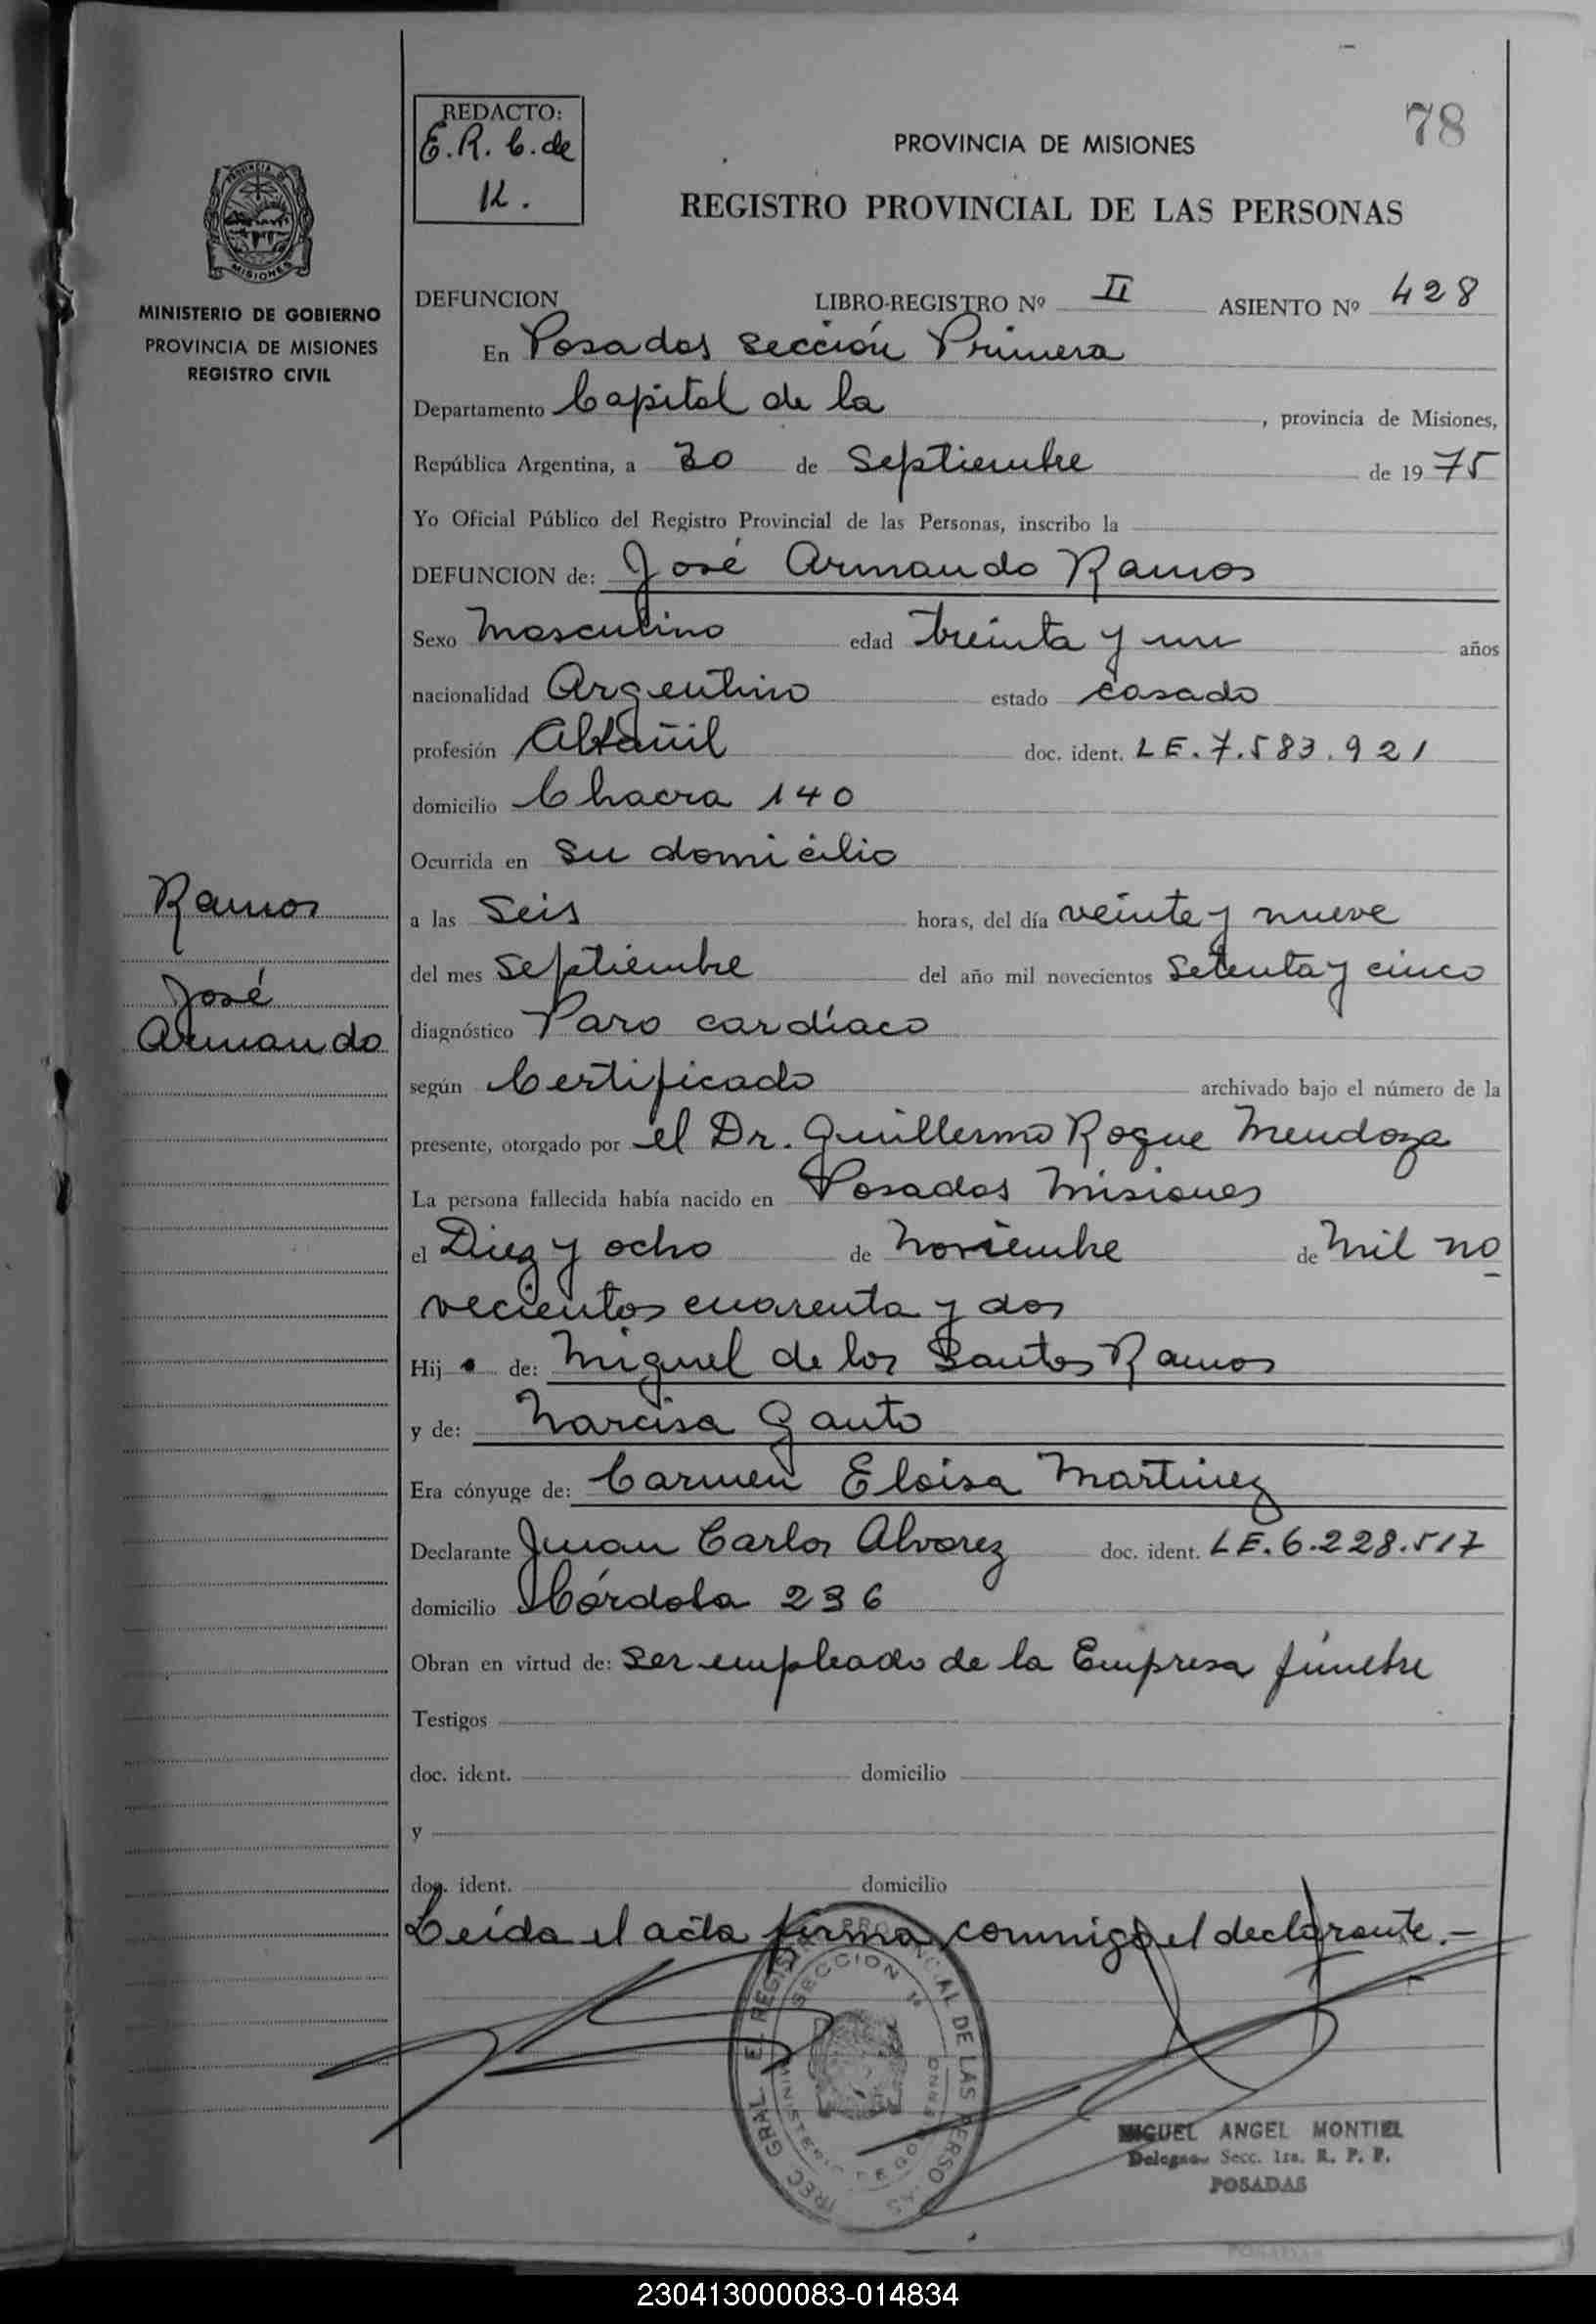 78
REDACTO:
E. R. C. de
K.
PROVINCIA DE MISIONES
REGISTRO PROVINCIAL DE LAS PERSONAS
MINISTERIO DE GOBIERNO
PROVINCIA DE MISIONES
REGISTRO CIVIL
DEFUNCION LIBRO-REGISTRO Nº II ASIENTO Nº 428
En Posadas Sección Primera
Departamento Capital de la , provincia de Misiones,
República Argentina, a 30 de Septiembre de 1975
Yo Oficial Público del Registro Provincial de las Personas, inscribo la
DEFUNCION de: José Armando Ramos
Sexo Masculino edad treinta y un años
nacionalidad Argentino estado casado
profesión Albañil doc. ident. LE. 7.583.921
domicilio Chacra 140
Ocurrida en su domicilio
a las Seis horas, del día veinte y nueve
del mes Septiembre del año mil novecientos Setenta y cinco
diagnóstico Paro cardíaco
según Certificado archivado bajo el número de la
presente, otorgado por el Dr. Guillermo Roque Mendoza
La persona fallecida había nacido en Posadas Misiones
el Diez y ocho de Noviembre de Mil no
vecientos cuarenta y dos
Hijo de: Miguel de los Santos Ramos
y de: Narcisa Gauto
Era cónyuge de: Carmen Eloisa Martinez
Declarante Juan Carlos Alvarez doc. ident. LE. 6.228.517
domicilio Córdoba 236
Obran en virtud de: Ser empleado de la Empresa fúnebre
Testigos
doc. ident. domicilio
y
doc. ident. domicilio
Leída el acta firma conmigo el declarante.-
Ramos
José
Armando
SECCION 1ª
MINISTERIO DE GOBIERNO
MIGUEL ANGEL MONTIEL
Delegado Secc. 1ra. R. P. P.
POSADAS
230413000083-014834